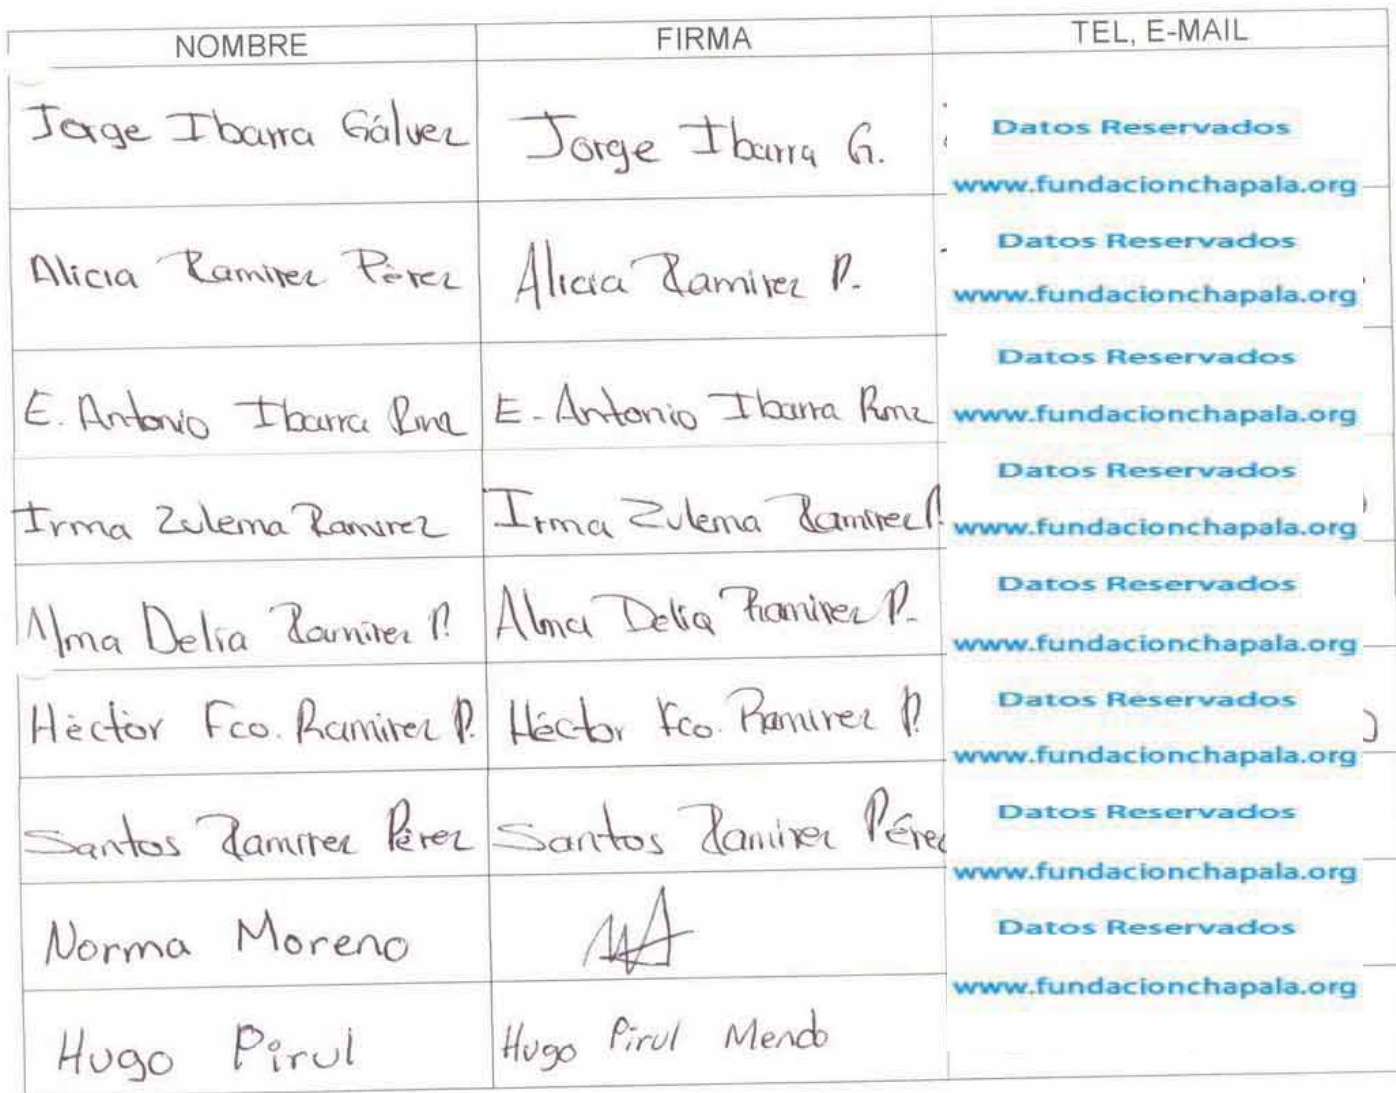 NOMBRE FIRMA TEL, E-MAIL
Jorge Ibarra Gálvez Jorge Ibarra G. Datos Reservados
www.fundacionchapala.org
Alicia Ramirez Pérez Alicia Ramirez P. Datos Reservados
www.fundacionchapala.org
Datos Reservados
E. Antonio Ibarra Rmz E. Antonio Ibarra Rmz www.fundacionchapala.org
Datos Reservados
Irma Zulema Ramirez Irma Zulema Ramirez P. www.fundacionchapala.org
Datos Reservados
Alma Delia Ramirez P. Alma Delia Ramirez P. www.fundacionchapala.org
Héctor Fco. Ramirez P. Héctor Fco. Ramirez P. Datos Reservados
www.fundacionchapala.org
Santos Ramirez Pérez Santos Ramirez Pérez Datos Reservados
www.fundacionchapala.org
Norma Moreno Datos Reservados
www.fundacionchapala.org
Hugo Pirul Hugo Pirul Mendo